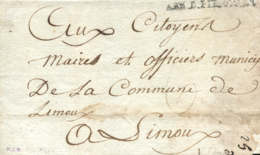 Aux Citoyens
Maires et officiers municip
De la Commune de
Limoux
A Limoux